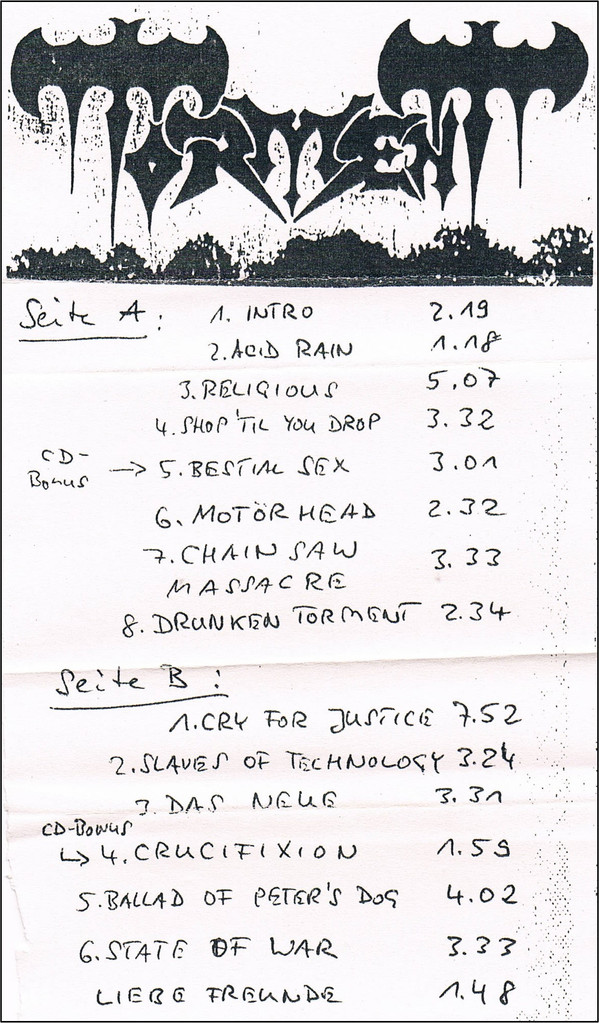 TORMENT
Seite A: 1. INTRO 2.19
2. ACID RAIN 1.18
3. RELIGIOUS 5.07
4. SHOP 'TIL YOU DROP 3.32
CD-
Bonus → 5. BESTIAL SEX 3.01
6. MOTÖRHEAD 2.32
7. CHAIN SAW 3.33
MASSACRE
8. DRUNKEN TORMENT 2.34
Seite B:
1. CRY FOR JUSTICE 7.52
2. SLAVES OF TECHNOLOGY 3.24
3. DAS NEUE 3.31
CD-BONUS
↳ 4. CRUCIFIXION 1.59
5. BALLAD OF PETER'S DOG 4.02
6. STATE OF WAR 3.33
LIEBE FREUNDE 1.48